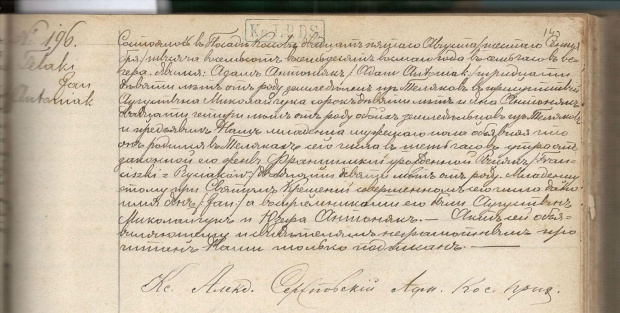 № 196.
Telaki
Jan
Antoniak
K.L.D.D.S.
Состоялось въ Посадѣ Косовъ двадцать пятаго Августа /шестаго Сентя-
бря/ тысяча восемьсотъ восемдесятъ восьмаго года въ семь часовъ ве-
чера. Явился: Адамъ Антонякъ /Adam Antoniak/ тридцати
девяти лѣтъ отъ роду земледѣлецъ изъ Теляковъ въ присутствіи
Августына Миколайчука сорока девяти лѣтъ и Яна Антоняка
двадцати четырехъ лѣтъ отъ роду обоихъ земледѣльцовъ изъ Теляковъ
и предъявилъ Намъ младенца мужескаго пола объявляя что
онъ родился въ Телякахъ сего числа въ часовъ утра отъ
законной его жены Францишки урожденной /Fran-
ciszki z / двадцати девяти лѣтъ отъ роду. Младенцу
этому при Святомъ Крещеніи совершенномъ сего числа дано
имя Янъ /Jan/ а воспріемниками его были Августынъ
Миколайчукъ и Антонякъ. — Актъ сей объя-
вляющему и свидѣтелямъ неграмотнымъ про-
читанъ Нами только подписанъ. —
Кс. Алекс. Адм. Кос. прих.